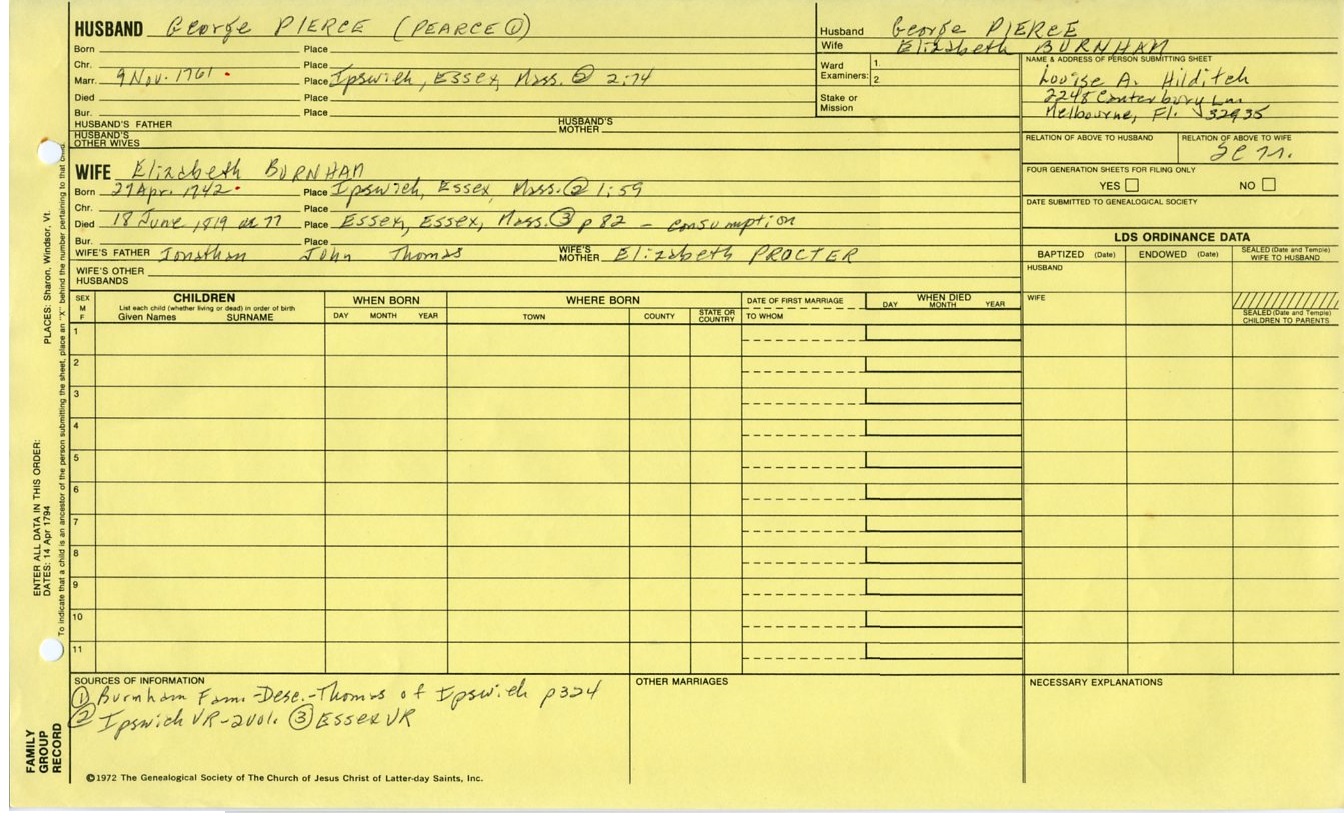 HUSBAND George PIERCE (PEARCE ①)
Born Place
Chr. Place
Marr. 9 Nov. 1761 Place Ipswich, Essex, Mass. ② 2:74
Died Place
Bur. Place
HUSBAND'S FATHER HUSBAND'S MOTHER
HUSBAND'S OTHER WIVES
Husband George PIERCE
Wife Elizabeth BURNHAM
Ward Examiners: 1.
2.
Stake or Mission
NAME & ADDRESS OF PERSON SUBMITTING SHEET
Louise A. Hilditch
2248 Canterbury Ln.
Melbourne, Fl. 32935
RELATION OF ABOVE TO HUSBAND RELATION OF ABOVE TO WIFE
FOUR GENERATION SHEETS FOR FILING ONLY
YES NO
DATE SUBMITTED TO GENEALOGICAL SOCIETY
WIFE Elizabeth BURNHAM
Born 27 Apr. 1742 Place Ipswich, Essex, Mass. ② 1:59
Chr. Place
Died 18 June 1819 ae 77 Place Essex, Essex, Mass. ③ p 82 - consumption
Bur. Place
WIFE'S FATHER Jonathan John Thomas WIFE'S MOTHER Elizabeth PROCTER
WIFE'S OTHER HUSBANDS
LDS ORDINANCE DATA
BAPTIZED (Date) ENDOWED (Date) SEALED (Date and Temple) WIFE TO HUSBAND
HUSBAND
WIFE
SEALED (Date and Temple) CHILDREN TO PARENTS
SEX M F
CHILDREN
List each child (whether living or dead) in order of birth
Given Names SURNAME
WHEN BORN
DAY MONTH YEAR
WHERE BORN
TOWN COUNTY STATE OR COUNTRY
DATE OF FIRST MARRIAGE
TO WHOM
WHEN DIED
DAY MONTH YEAR
1
2
3
4
5
6
7
8
9
10
11
SOURCES OF INFORMATION
① Burnham Fam.-Desc.-Thomas of Ipswich p324
② Ipswich VR-2vol. ③ Essex VR
OTHER MARRIAGES
NECESSARY EXPLANATIONS
©1972 The Genealogical Society of The Church of Jesus Christ of Latter-day Saints, Inc.
FAMILY GROUP RECORD
ENTER ALL DATA IN THIS ORDER:
DATES: 14 Apr 1794
PLACES: Sharon, Windsor, Vt.
To indicate that a child is an ancestor of the person submitting the sheet, place an "X" behind the number pertaining to that child.